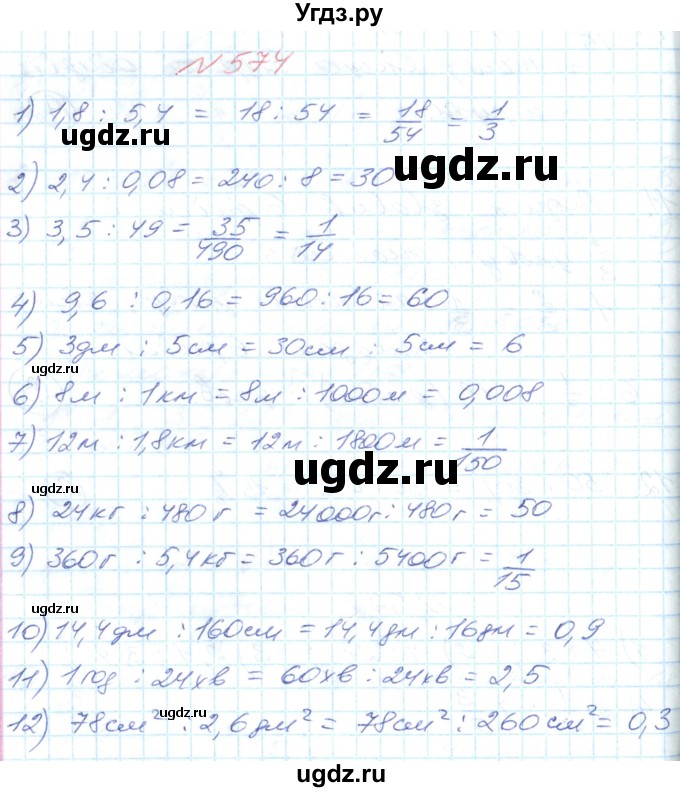 Угдз.ру
№574
1) 1,8 : 5,4 = 18 : 54 = 18/54 = 1/3
ugdz.ru
ugdz.ru
2) 2,4 : 0,08 = 240 : 8 = 30
3) 3,5 : 49 = 35/490 = 1/14
4) 9,6 : 0,16 = 960 : 16 = 60
5) 3дм : 5см = 30см : 5см = 6
ugdz.ru
6) 8м : 1км = 8м : 1000м = 0,008
7) 12м : 1,8км = 12м : 1800м = 1/150
ugdz.ru
ugdz.ru
8) 24кг : 480г = 24000г : 480г = 50
9) 360г : 5,4кг = 360г : 5400г = 1/15
ugdz.ru
10) 14,4дм : 160см = 14,4дм : 16дм = 0,9
11) 1год : 24хв = 60хв : 24хв = 2,5
ugdz.ru
12) 78см² : 2,6дм² = 78см² : 260см² = 0,3
ugdz.ru
ugdz.ru